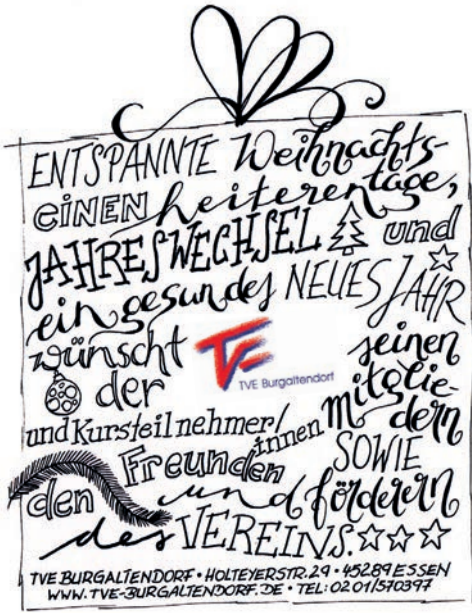 ENTSPANNTE Weihnachts-
tage,
EINEN heiteren
JAHRESWECHSEL und
ein gesundes NEUES JAHR
wünscht
der
TVE
TVE Burgaltendorf
seinen
Mitglie-
dern
und Kursteilnehmer/
innen
SOWIE
den Freunden
und förderern
des VEREINS.
TVE BURGALTENDORF • HOLTEYERSTR. 29 • 45289 ESSEN
WWW.TVE-BURGALTENDORF.DE • TEL: 0201/570397